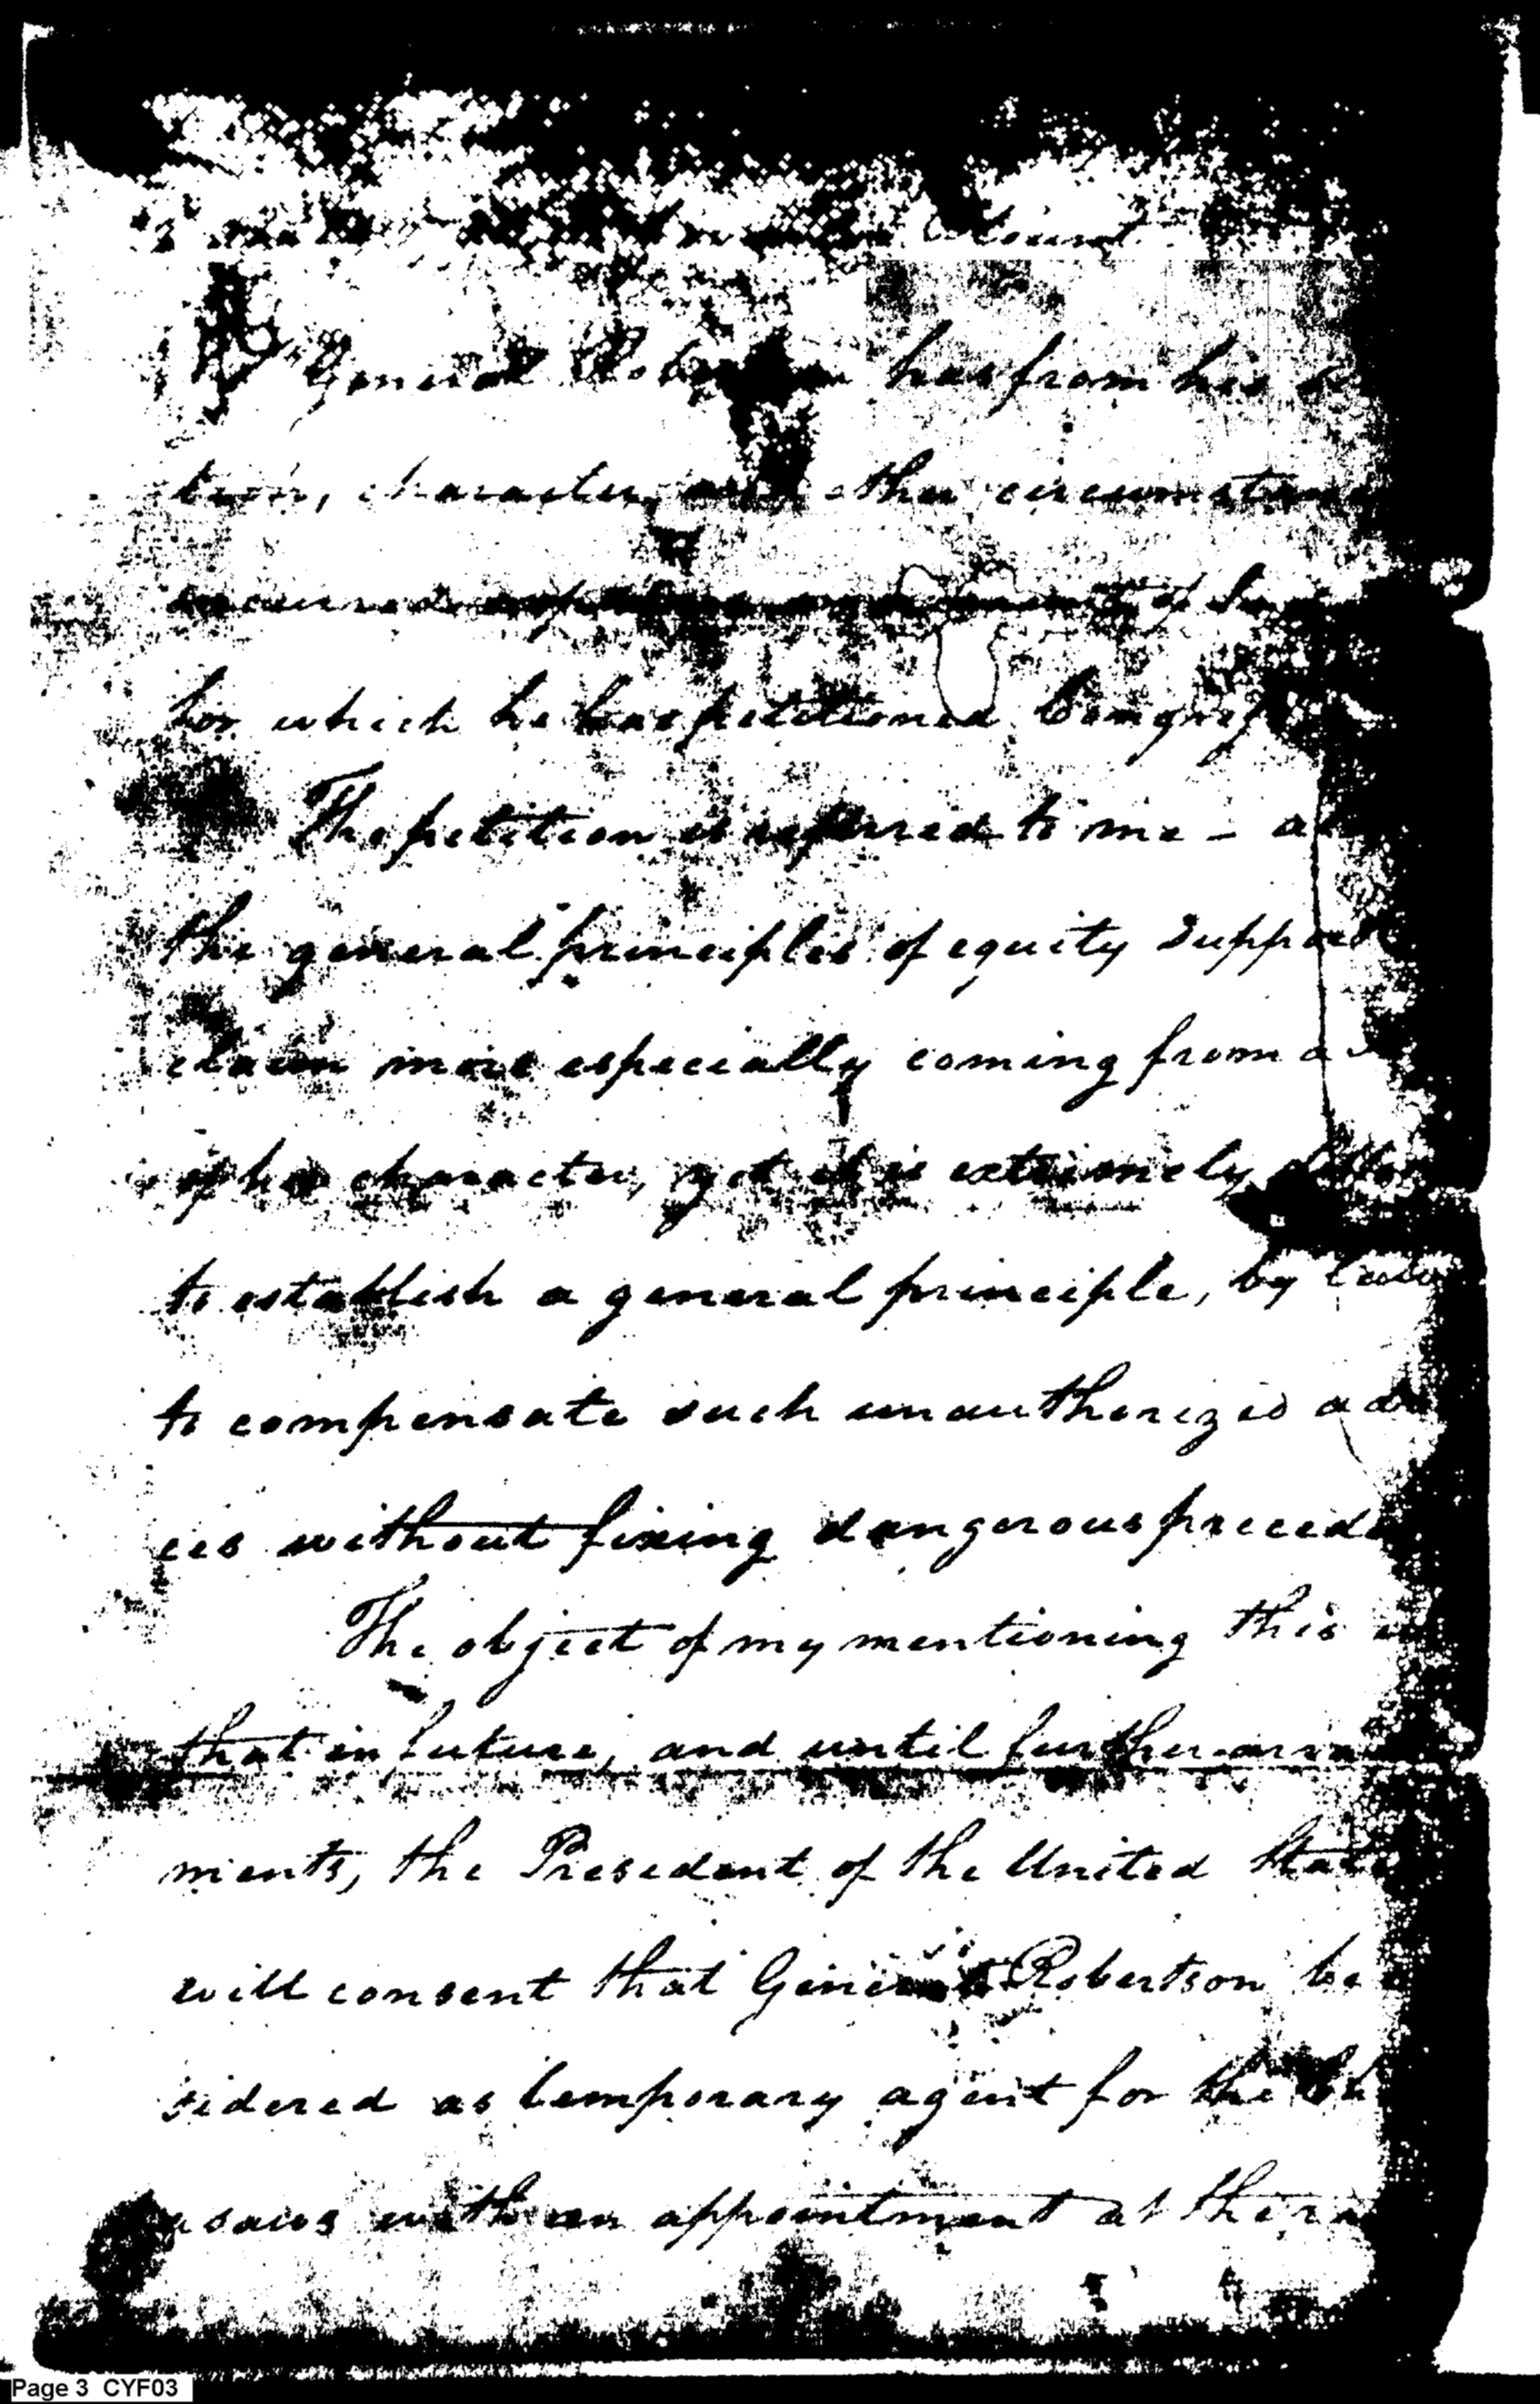 General has from his
tion, character, and other circumstan
incurred of
for which he has petitioned Congress
The petition is referred to me - a
the general principles of equity support
claim more especially coming from a
of his character, yet it is extremely
to establish a general principle, by law
to compensate such unauthorized ad
ces without fixing dangerous precede
The object of my mentioning this
that in future, and until further arran
ments, the President of the United State
will consent that General Robertson be
sidered as temporary agent for the Ch
asaws with an appointment at the ra
Page 3 CYF03